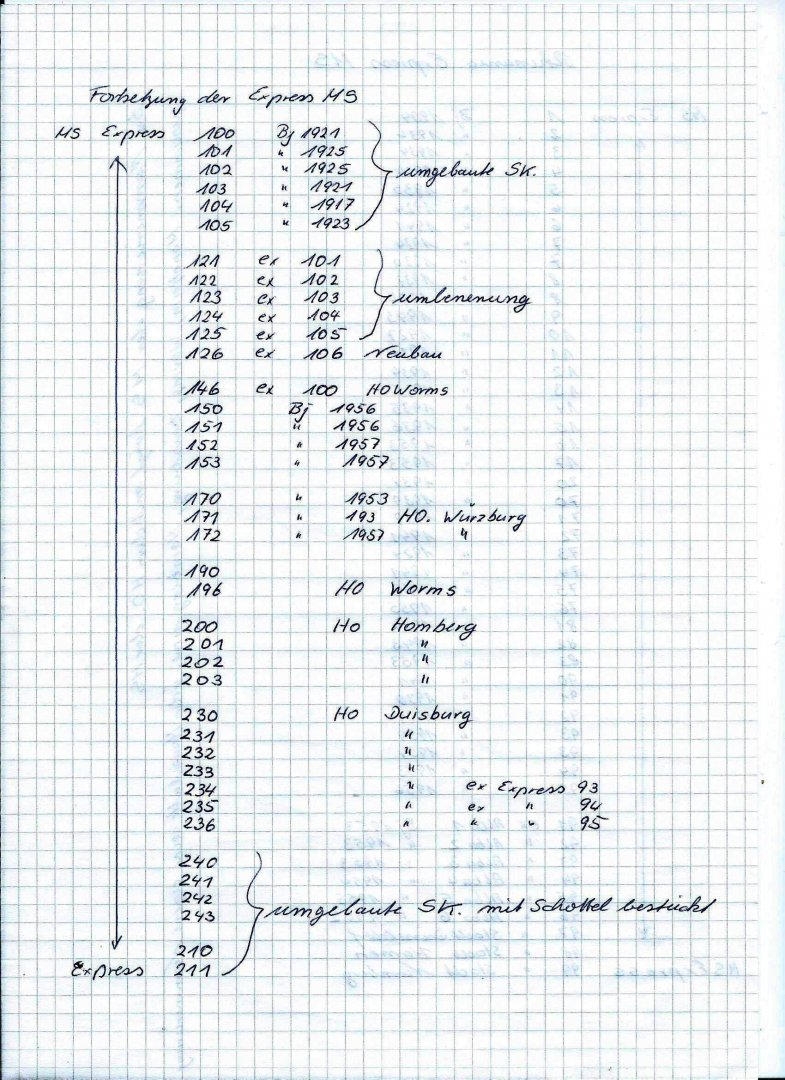 Fortsetzung der Express MS
MS Express 100 Bj 1921
101 " 1925
102 " 1925 umgebaute SK.
103 " 1921
104 " 1917
105 " 1923
121 ex 101
122 ex 102
123 ex 103 umbenenung
124 ex 104
125 ex 105
126 ex 106 Neubau
146 ex 100 HO Worms
150 Bj 1956
151 " 1956
152 " 1957
153 " 1957
170 " 1953
171 " 193 HO. Würzburg
172 " 1957 "
190
196 HO Worms
200 HO Homberg
201 "
202 "
203 "
230 HO Duisburg
231 "
232 "
233 "
234 " ex Express 93
235 " ex " 94
236 " " " 95
240
241
242 umgebaute SK. mit Schottel bestückt
243
210
Express 211